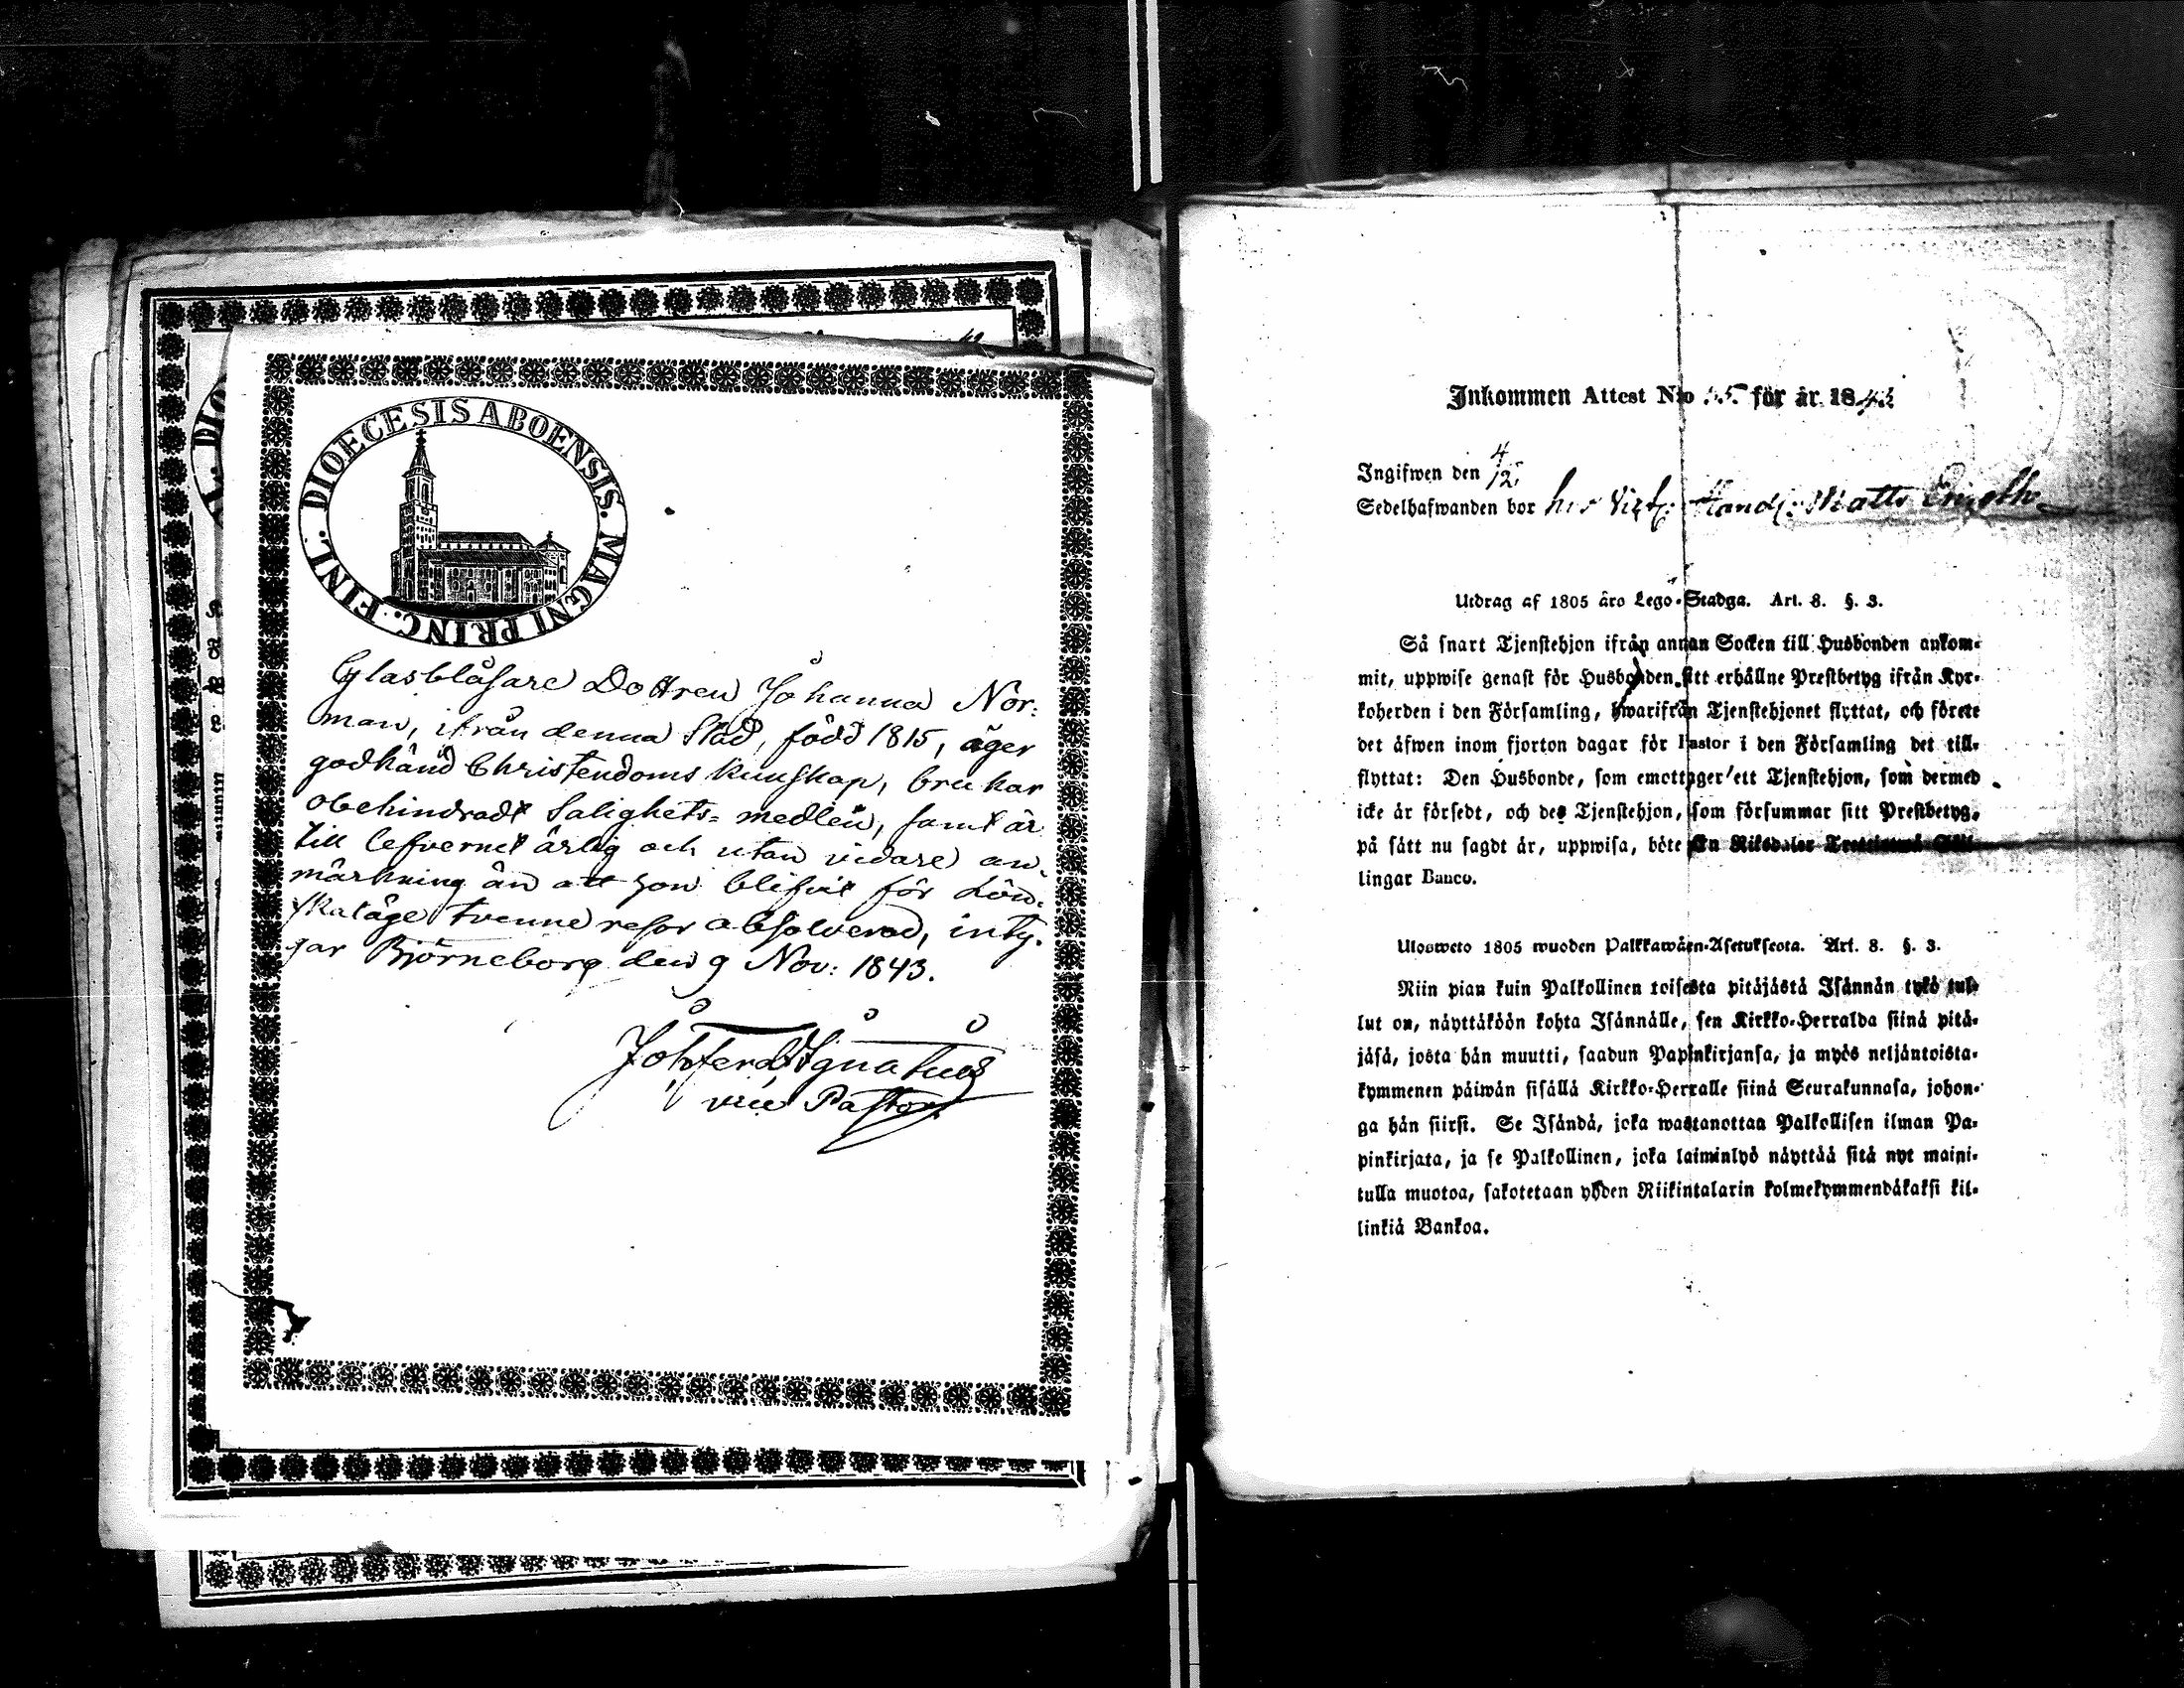 DIOECESIS ABOENSIS. MAGNI PRINC. FINL.
Glasblåsare Dottren Johanna Nor-
man, ifrån denna Stad, född 1815, äger
godkänd Christendoms kunskap, brukar
obehindradt Salighets-medlen, samt är
till lefvernet ärlig och utan vidare an-
märkning än att hon blifvit för Lön-
skaläge tvenne resor absolverad, inty-
gar Björneborg den 9 Nov: 1843.
Joh. Ferd. Ignatius
vice Pastor.
Inkommen Attest N:o 55 för år 1843
Ingifwen den 4/12
Sedelhafwanden bor hos Handl: Matts
Utdrag af 1805 års Lego-Stadga. Art. 8. §. 3.
Så snart Tjenstehjon ifrån annan Socken till Husbonden ankom-
mit, uppwise genast för Husbonden sitt erhållne Prestbetyg ifrån Kyr-
koherden i den Församling, hwarifrån Tjenstehjonet flyttat, och förete
det äfwen inom fjorton dagar för Pastor i den Församling det till-
flyttat: Den Husbonde, som emottager ett Tjenstehjon, som dermed
icke är försedt, och det Tjenstehjon, som försummar sitt Prestbetyg,
på sätt nu sagdt är, uppwisa, böte En Riksdaler Trettiotwå Skil-
lingar Banco.
Ulosweto 1805 wuoden Palkkawäen-Asetuksesta. Art. 8. §. 3.
Niin pian kuin Palkollinen toisesta pitäjästä Isännän tykö tul-
lut on, näyttäköön kohta Isännälle, sen Kirkko-Herralda siinä pitä-
jäsä, josta hän muutti, saadun Papinkirjansa, ja myös neljäntoista-
kymmenen päiwän sisällä Kirkko-Herralle siinä Seurakunnasa, johon-
ga hän siirsi. Se Isändä, joka wastanottaa Palkollisen ilman Pa-
pinkirjata, ja se Palkollinen, joka laiminlyö näyttää sitä nyt maini-
tulla muotoa, sakotetaan yhden Riikintalarin kolmekymmendäkaksi kil-
linkiä Bankoa.